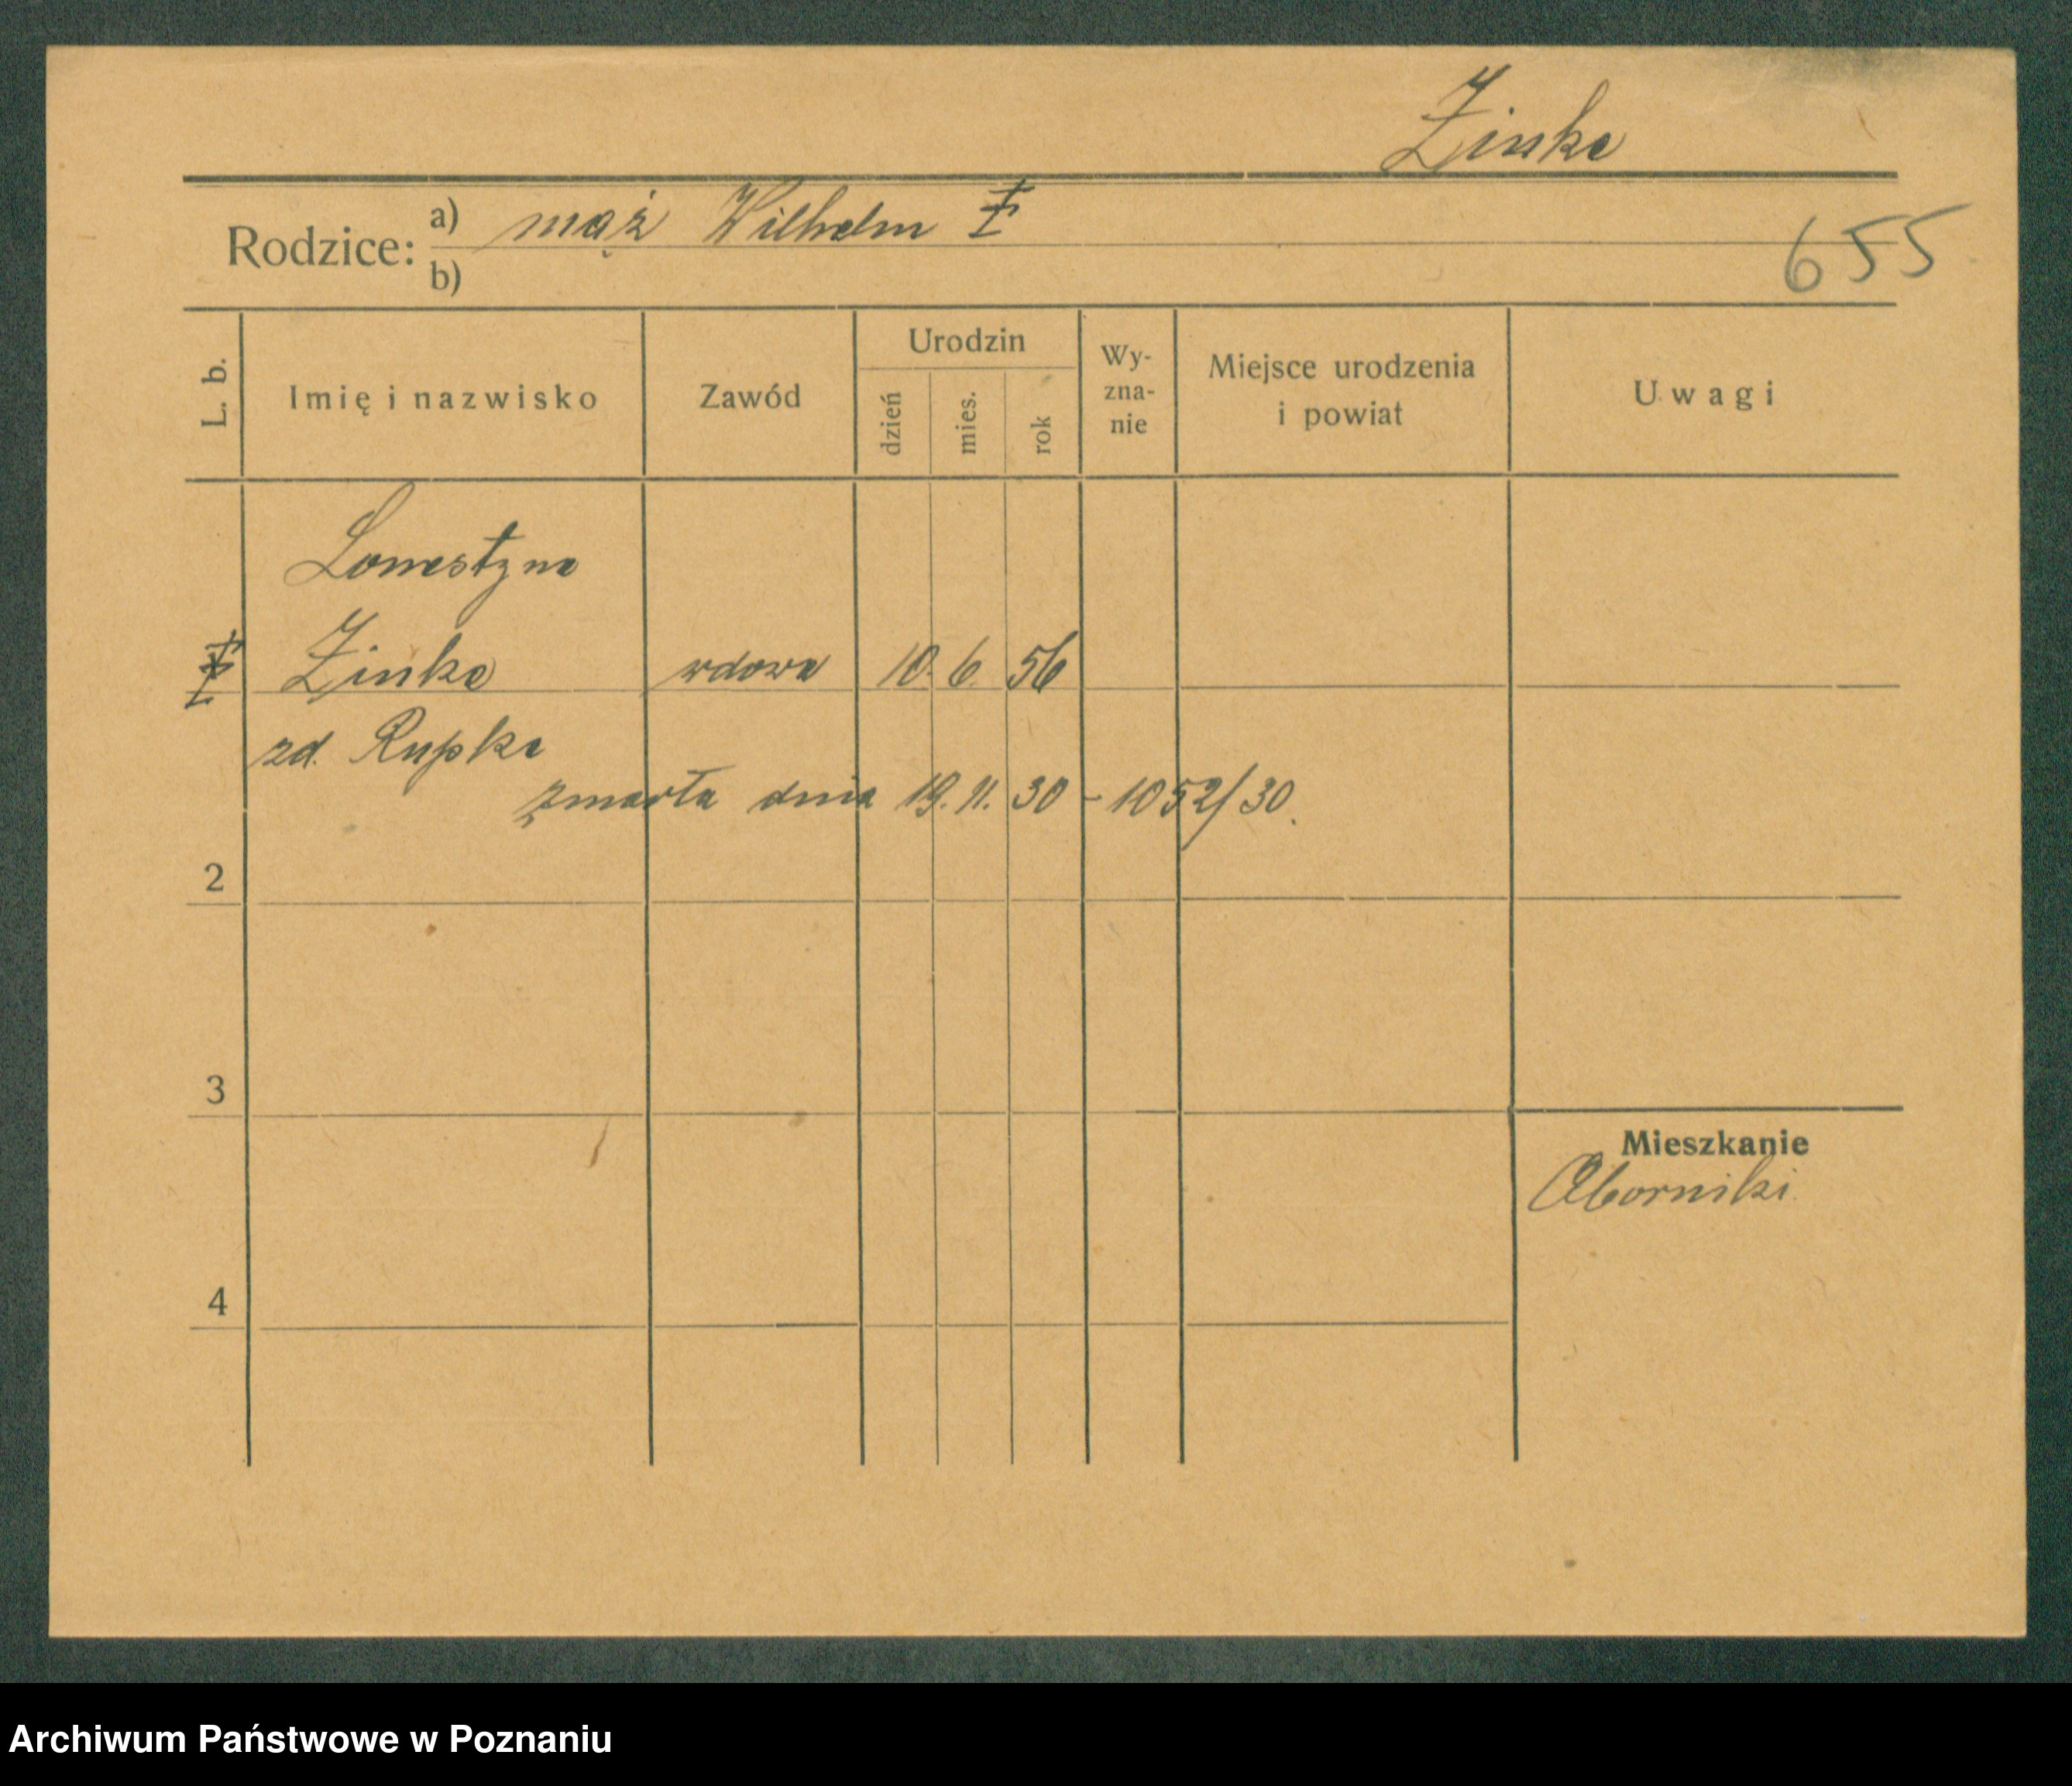 Zinke
Rodzice: a) mąż Wilhelm ‡
b)
655
L. b. Imię i nazwisko Zawód Urodzin dzień mies. rok Wy-zna-nie Miejsce urodzenia i powiat Uwagi
Zinke wdowa 10. 6. 56
zd. Rupke
zmarła dnia 19. 11. 30 - 1052/30.
2
3
Mieszkanie
Oborniki
4
Archiwum Państwowe w Poznaniu